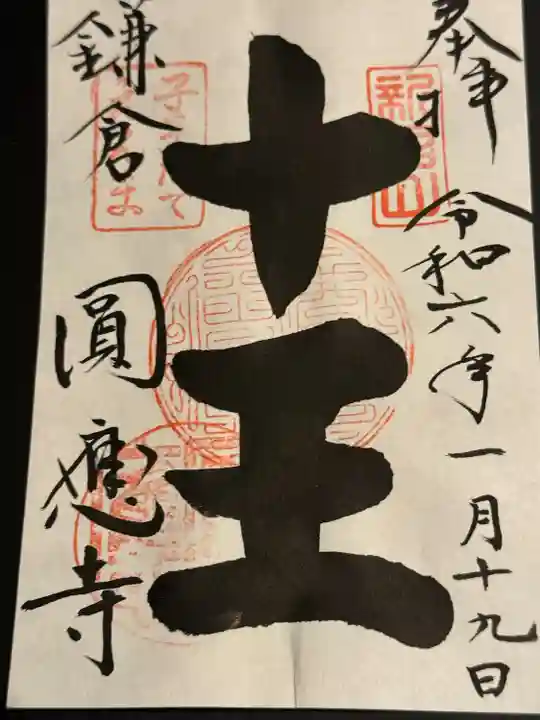 奉拝
令和六年一月十九日
十王
鎌倉
圓應寺